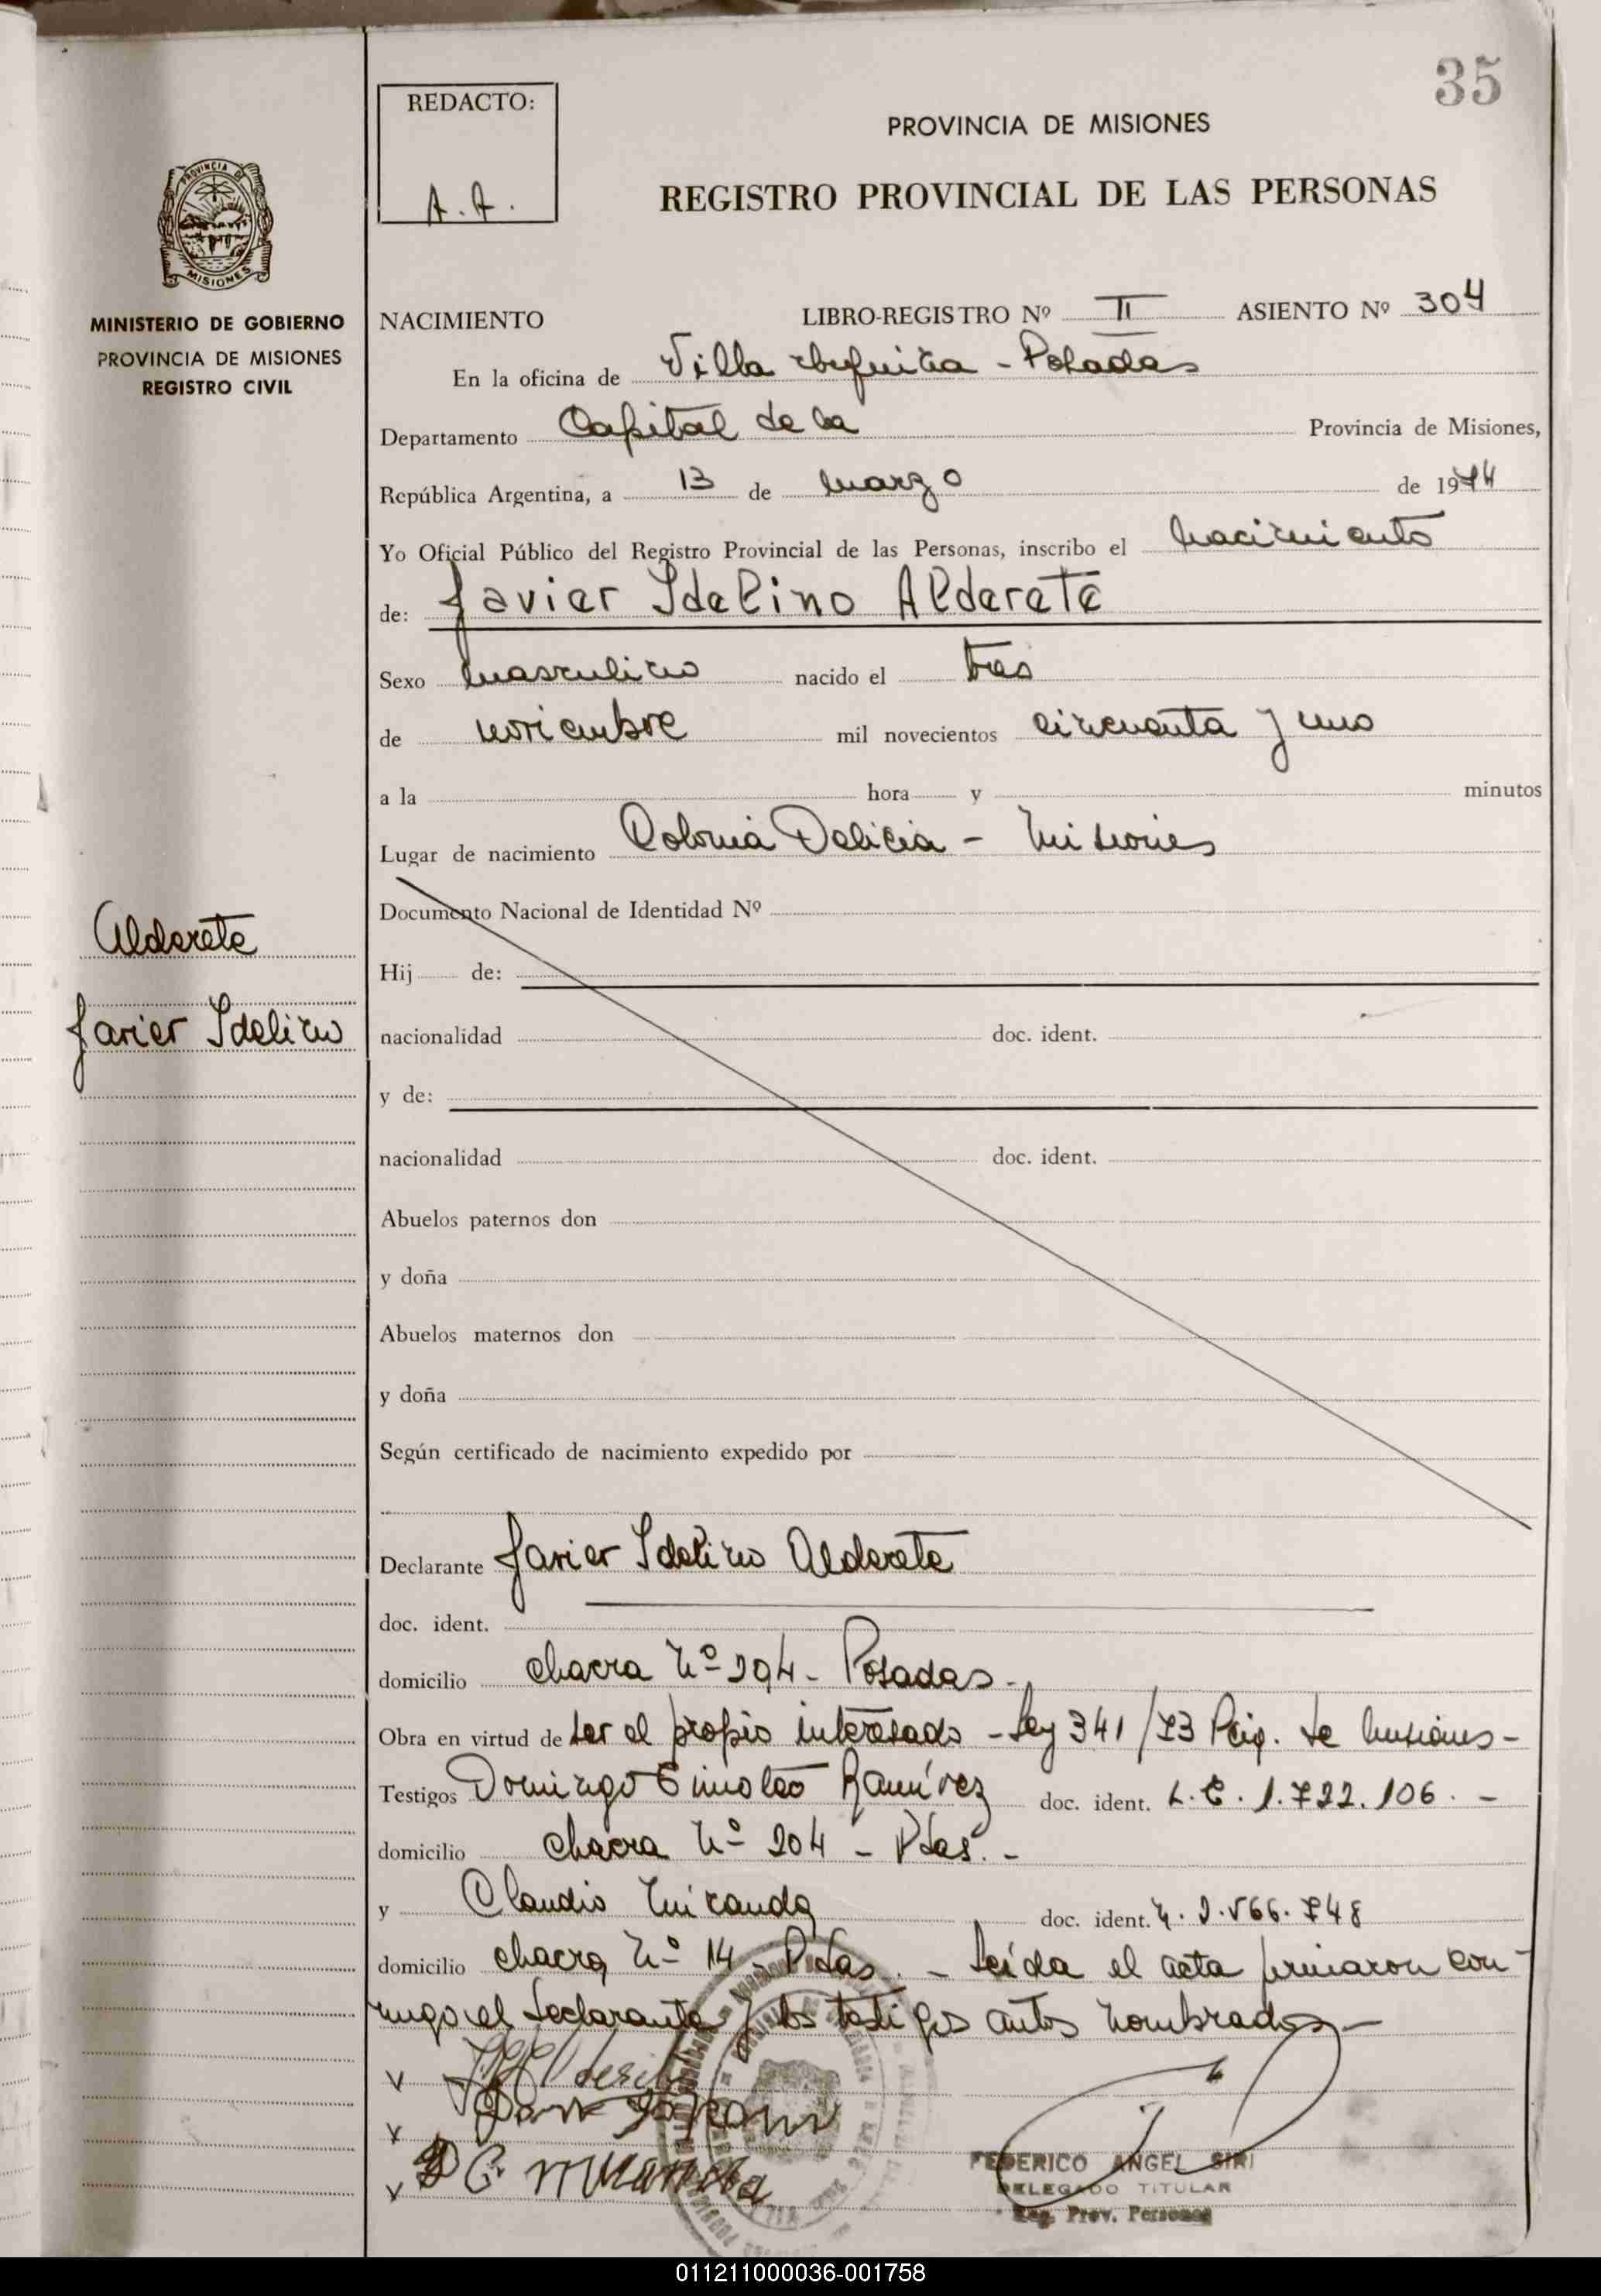 35
REDACTO:
A. A.
PROVINCIA DE MISIONES
REGISTRO PROVINCIAL DE LAS PERSONAS
PROVINCIA DE
MISIONES
MINISTERIO DE GOBIERNO
PROVINCIA DE MISIONES
REGISTRO CIVIL
NACIMIENTO LIBRO-REGISTRO Nº II ASIENTO Nº 304
En la oficina de Villa - Posadas
Departamento Capital de la Provincia de Misiones,
República Argentina, a 13 de marzo de 1974
Yo Oficial Público del Registro Provincial de las Personas, inscribo el nacimiento
de: Javier Idelino Alderete
Sexo masculino nacido el tres
de noviembre mil novecientos cincuenta y uno
a la hora y minutos
Lugar de nacimiento Colonia Delicia - Misiones
Documento Nacional de Identidad Nº
Alderete
Hij de:
Javier Idelino
nacionalidad doc. ident.
y de:
nacionalidad doc. ident.
Abuelos paternos don
y doña
Abuelos maternos don
y doña
Según certificado de nacimiento expedido por
Declarante Javier Idelino Alderete
doc. ident.
domicilio chacra Nº 204 - Posadas -
Obra en virtud de ser el propio interesado - Ley 341/73 de Misiones -
Testigos Domingo Ramírez doc. ident. L. E. 1.722.106. -
domicilio chacra Nº 204 - Pdas. -
y Claudio Miranda doc. ident.
domicilio chacra Nº 14 - Pdas. - Leída el acta firmaron con-
migo el declarante y los testigos antes nombrados -
FEDERICO ANGEL SIRI
DELEGADO TITULAR
Reg. Prov. Personas
011211000036-001758